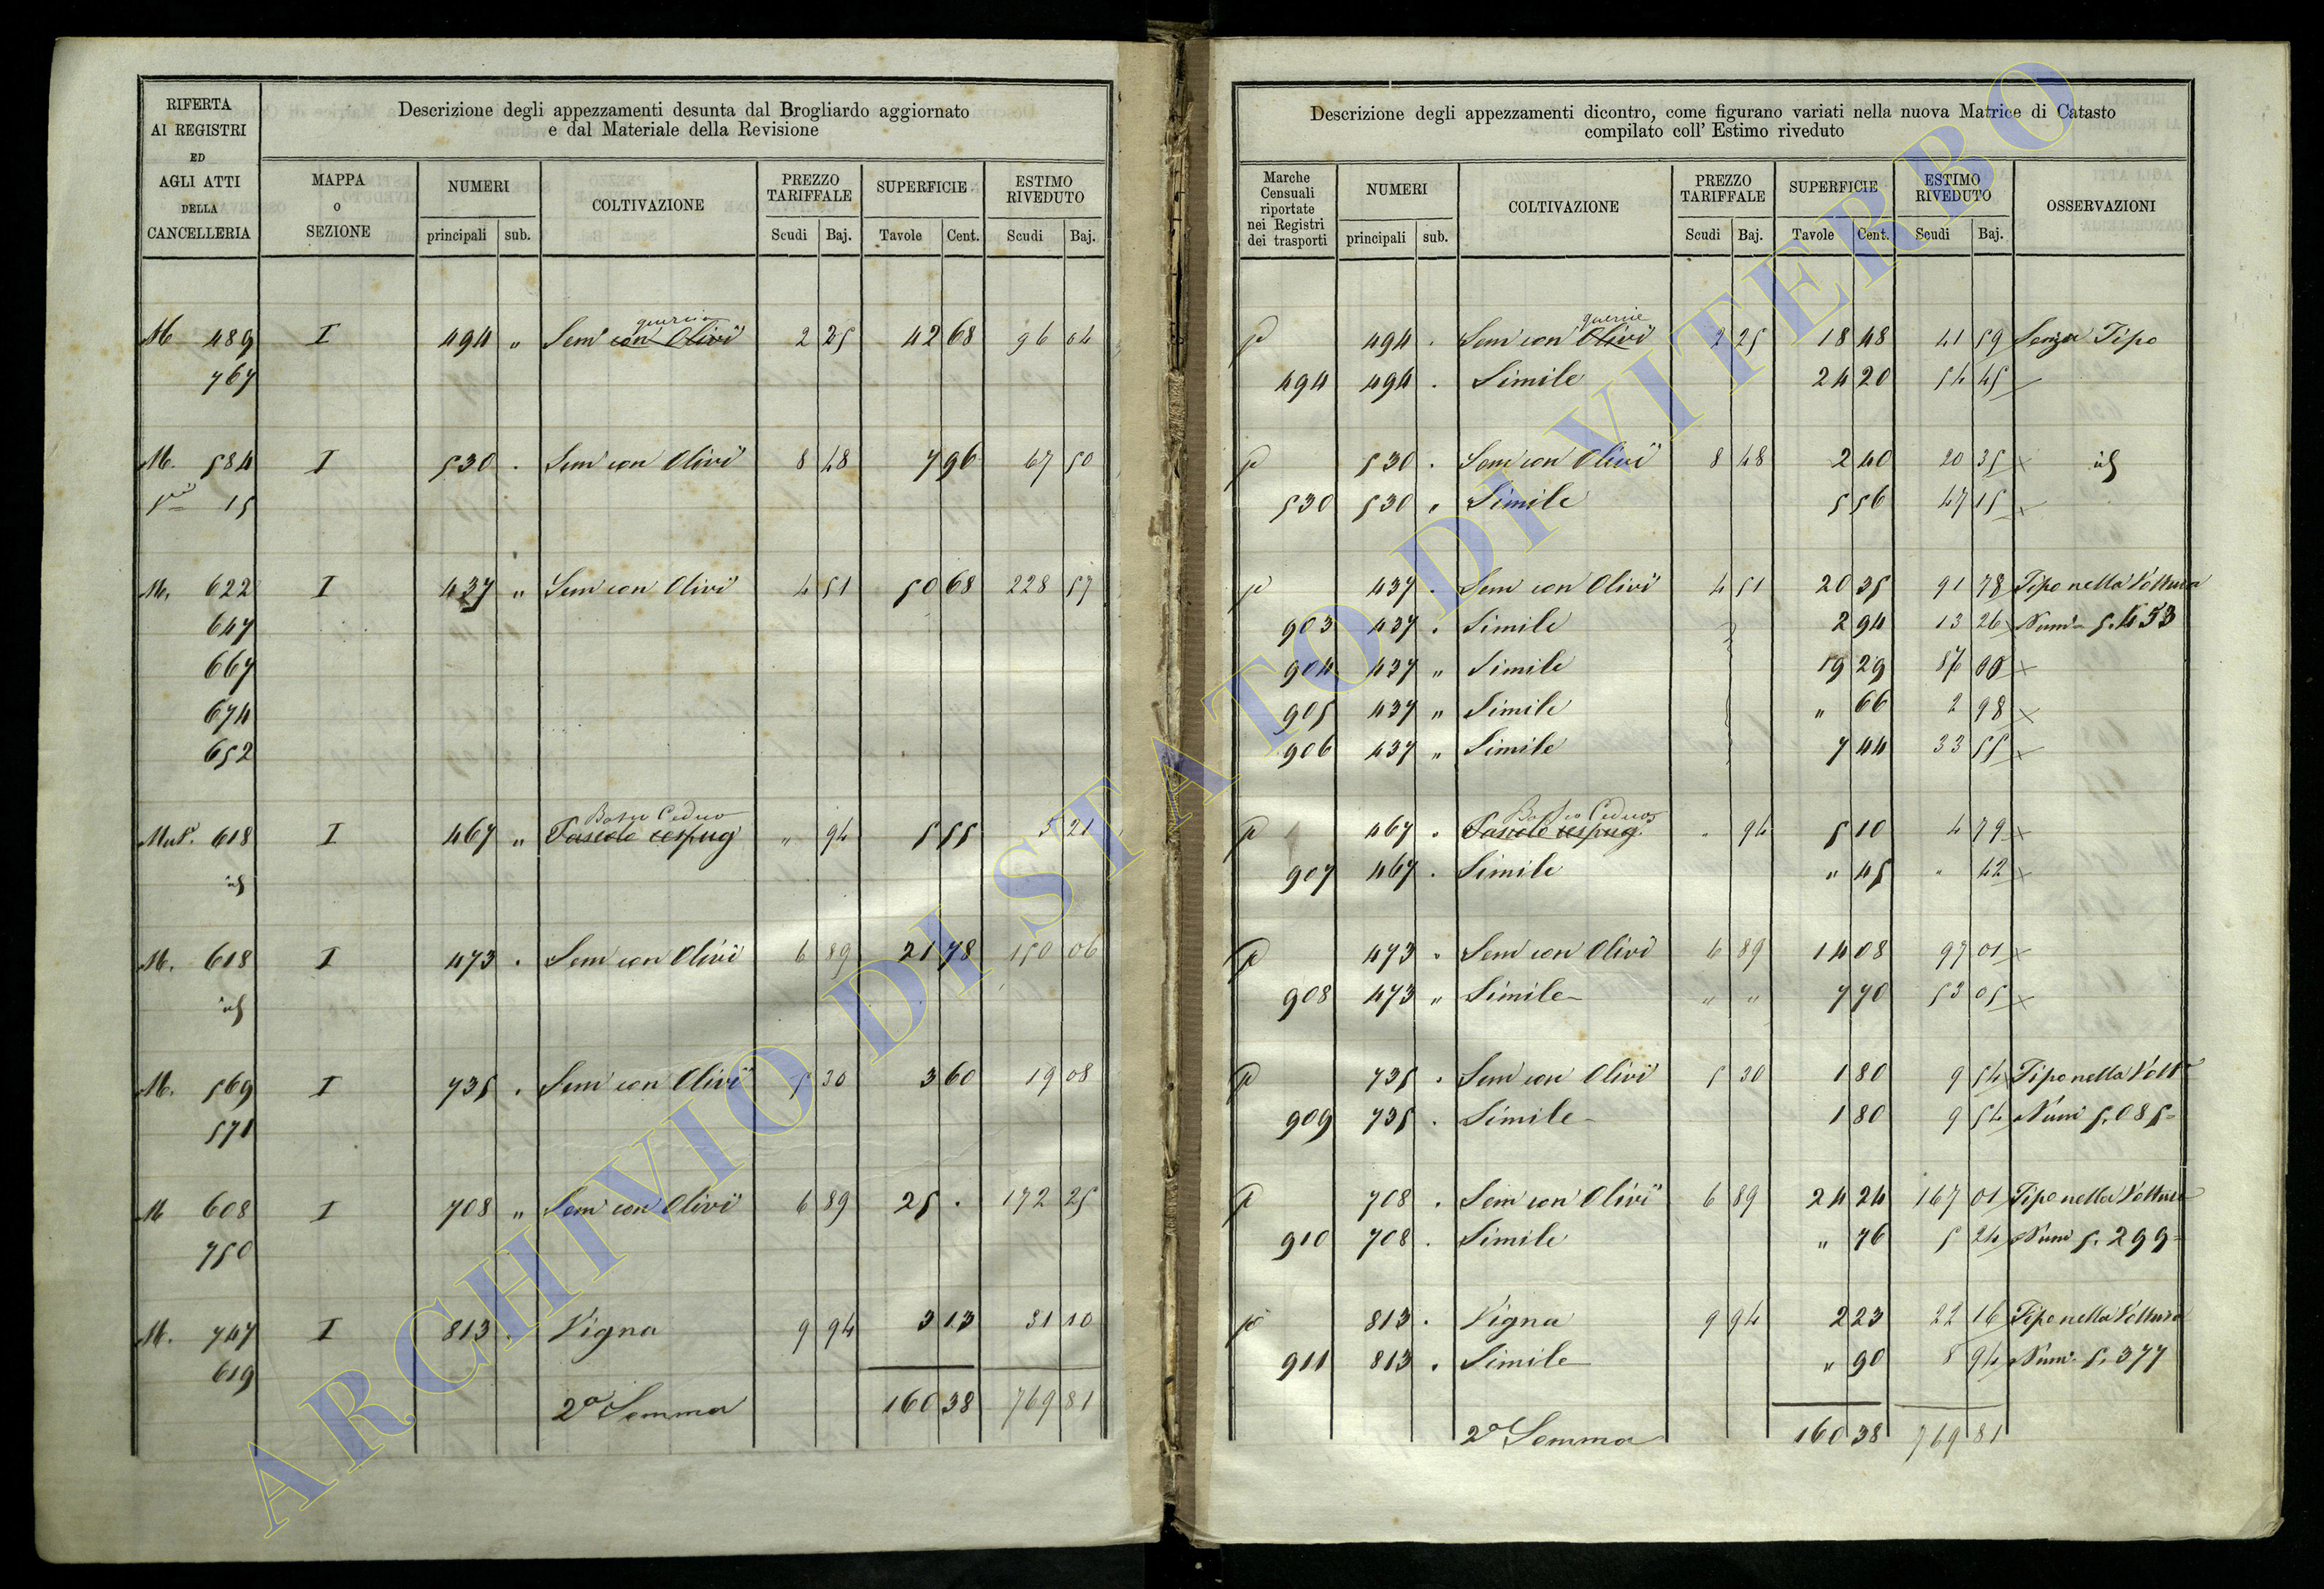 RIFERTA
AI REGISTRI
ED
AGLI ATTI
DELLA
CANCELLERIA
Descrizione degli appezzamenti desunta dal Brogliardo aggiornato
e dal Materiale della Revisione
MAPPA
O
SEZIONE
NUMERI
principali sub.
COLTIVAZIONE
PREZZO
TARIFFALE
Scudi Baj.
SUPERFICIE
Tavole Cent.
ESTIMO
RIVEDUTO
Scudi Baj.
quercie
M 489 I 494 " Sem con Olivi 2 25 42 68 96 04
767
M. 584 I 530 . Sem con Olivi 8 48 7 96 67 50
15
M. 622 I 437 " Sem con Olivi 4 51 50 68 228 57
647
667
674
652
Bosco Ceduo
Mut. 618 I 467 " Pascolo cespug " 94 5 55 5 21
id
M. 618 I 473 . Sem con Olivi 6 89 21 78 150 06
id
M. 569 I 735 . Sem con Olivi 5 30 3 60 19 08
571
M 608 I 708 " Sem con Olivi 6 89 25 . 172 25
750
M. 747 I 813 . Vigna 9 94 3 13 31 10
619
2a Somma 160 38 769 81
Descrizione degli appezzamenti dicontro, come figurano variati nella nuova Matrice di Catasto
compilato coll' Estimo riveduto
Marche
Censuali
riportate
nei Registri
dei trasporti
NUMERI
principali sub.
COLTIVAZIONE
PREZZO
TARIFFALE
Scudi Baj.
SUPERFICIE
Tavole Cent.
ESTIMO
RIVEDUTO
Scudi Baj.
OSSERVAZIONI
quercie
p 494 . Sem con Olivi 2 25 18 48 41 59 Senza Tipo
494 494 . Simile 24 20 54 45
p 530 . Sem con Olivi 8 48 2 40 20 35 id
530 530 " Simile 5 56 47 15
p 437 . Sem con Olivi 4 51 20 35 91 78 Tipo nella Voltura
903 437 . Simile 2 94 13 26 Num 5.453
904 437 " Simile 19 29 87 00
905 437 " Simile " 66 2 98
906 437 " Simile 7 44 33 55
Bosco Ceduo
p 467 . Pascolo cespug. " 94 5 10 4 79
907 467 . Simile " 45 " 42
p 473 " Sem con Olivi 6 89 14 08 97 01
908 473 " Simile " " 7 70 53 05
p 735 . Sem con Olivi 5 30 1 80 9 54 Tipo nella Volta
909 735 . Simile 1 80 9 54 Num 5.085
p 708 . Sem con Olivi 6 89 24 24 167 01 Tipo nella Voltura
910 708 . Simile " 76 5 24 Num 5.299
p 813 . Vigna 9 94 2 23 22 16 Tipo nella Voltura
911 813 . Simile " 90 8 94 Num. 5.377
2a Somma 160 38 769 81
ARCHIVIO DI STATO DI VITERBO